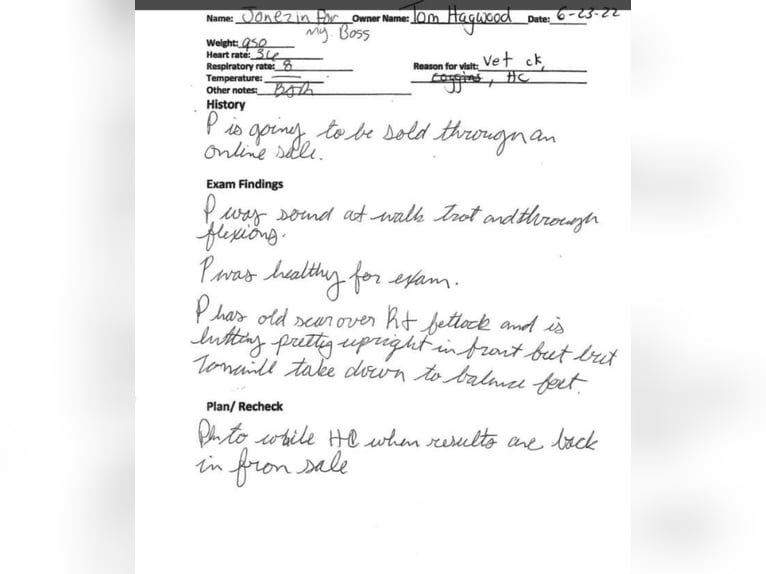 Name: Jonezin for Owner Name: Tom Hagwood Date: 6-23-22
My Boss
Weight: 950
Heart rate: 36
Respiratory rate: 8 Reason for visit: Vet ck,
Temperature: — coggins, HC
Other notes:
History
P is going to be sold through an
online sale.
Exam Findings
P was sound at walk trot and through
flexions.
P was healthy for exam.
P has old scar over Rt fetlock and is
pretty upright in front feet but
Tom will take down to balance feet.
Plan/ Recheck
HC when results are back
in from sale